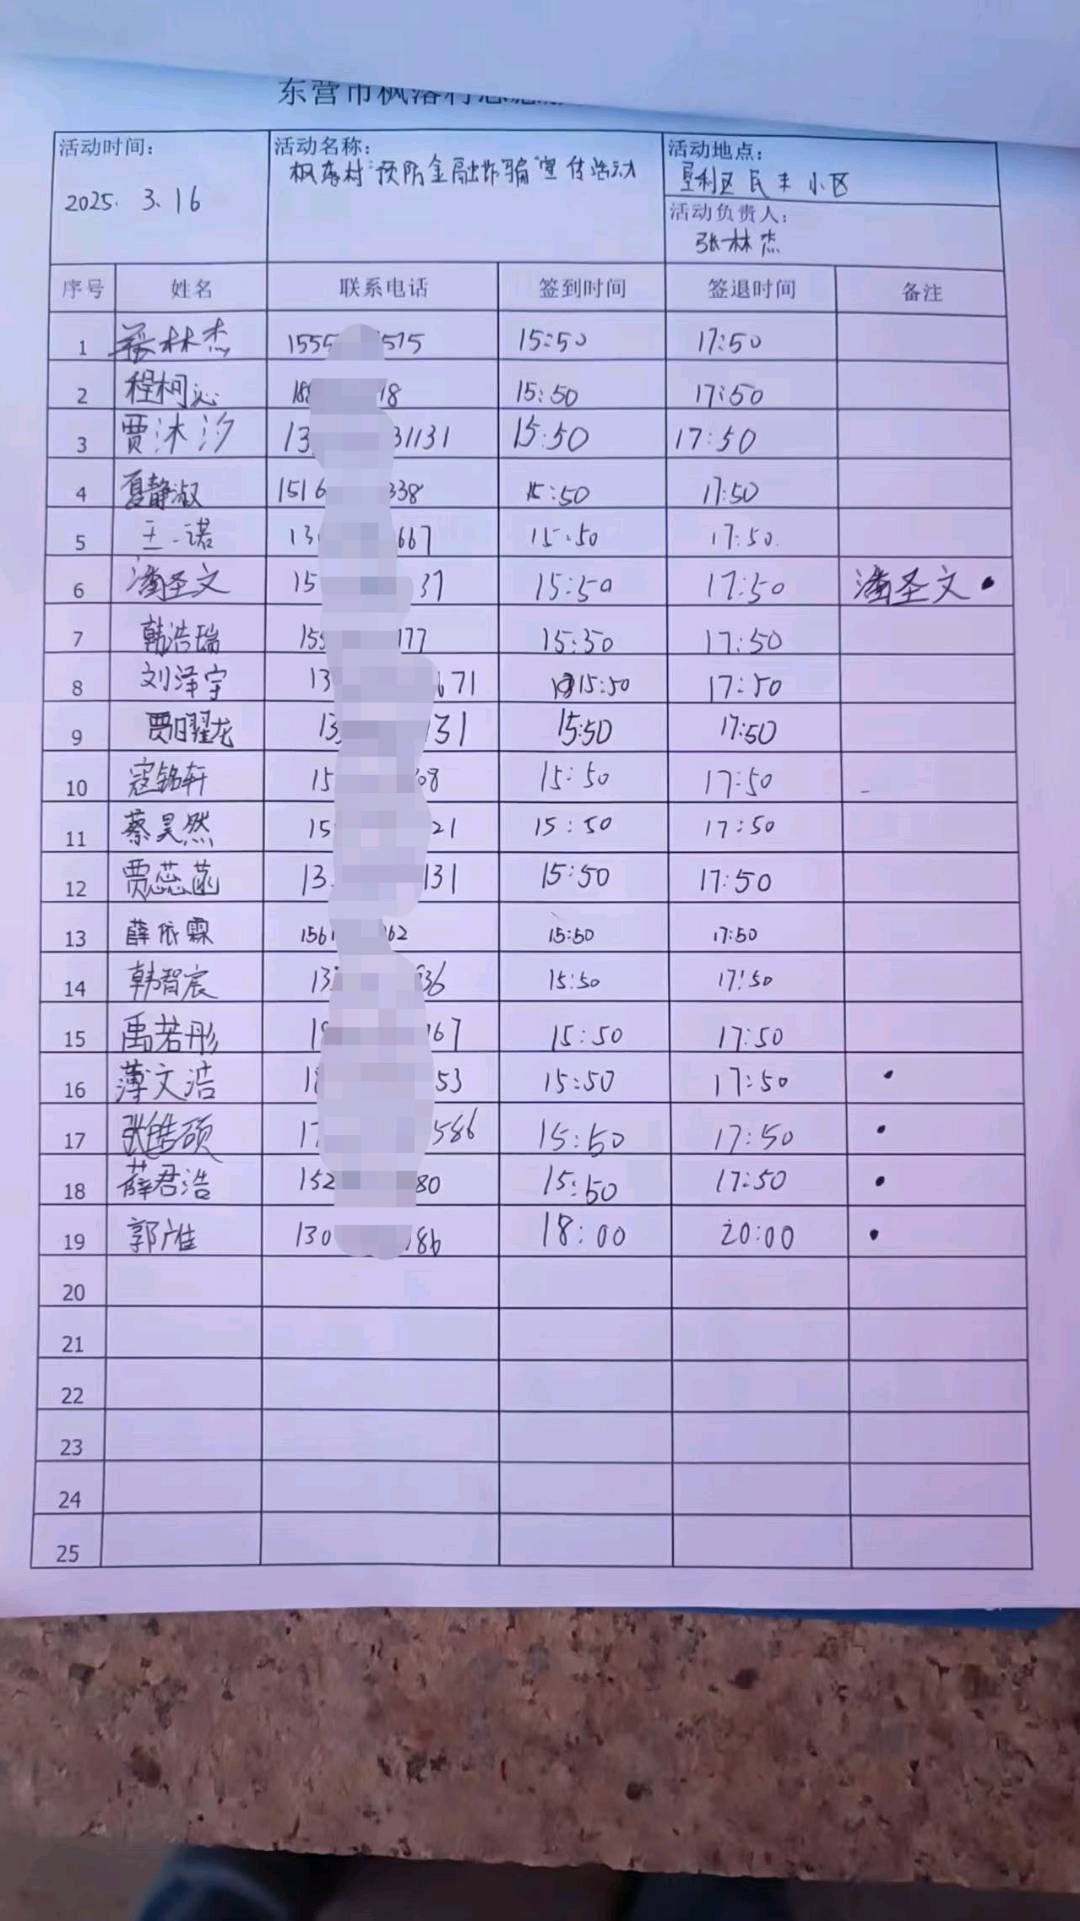 东营市枫落村志愿
活动时间： 活动名称： 活动地点：
2025. 3. 16 枫落村“预防金融诈骗”宣传活动 垦利区民丰小区
活动负责人：
张林杰
序号 姓名 联系电话 签到时间 签退时间 备注
1 张林杰 1555 575 15:50 17:50
2 程柯沁 188 18 15:50 17:50
3 贾沐汐 13 31131 15:50 17:50
4 夏静淑 1516 338 15:50 17:50
5 王一诺 13 667 15:50 17:50
6 潘圣文 15 37 15:50 17:50 潘圣文
7 韩浩瑞 155 177 15:50 17:50
8 刘泽宇 13 671 15:50 17:50
9 贾曜龙 13 131 15:50 17:50
10 寇铭轩 15 08 15:50 17:50
11 蔡昊然 15 21 15:50 17:50
12 贾蕊菡 13 131 15:50 17:50
13 薛依霖 156 62 15:50 17:50
14 韩智宸 13 36 15:50 17:50
15 禹若彤 18 67 15:50 17:50
16 薄文浩 18 53 15:50 17:50
17 张皓硕 17 586 15:50 17:50
18 薛君浩 152 80 15:50 17:50
19 郭广佳 130 86 18:00 20:00
20
21
22
23
24
25